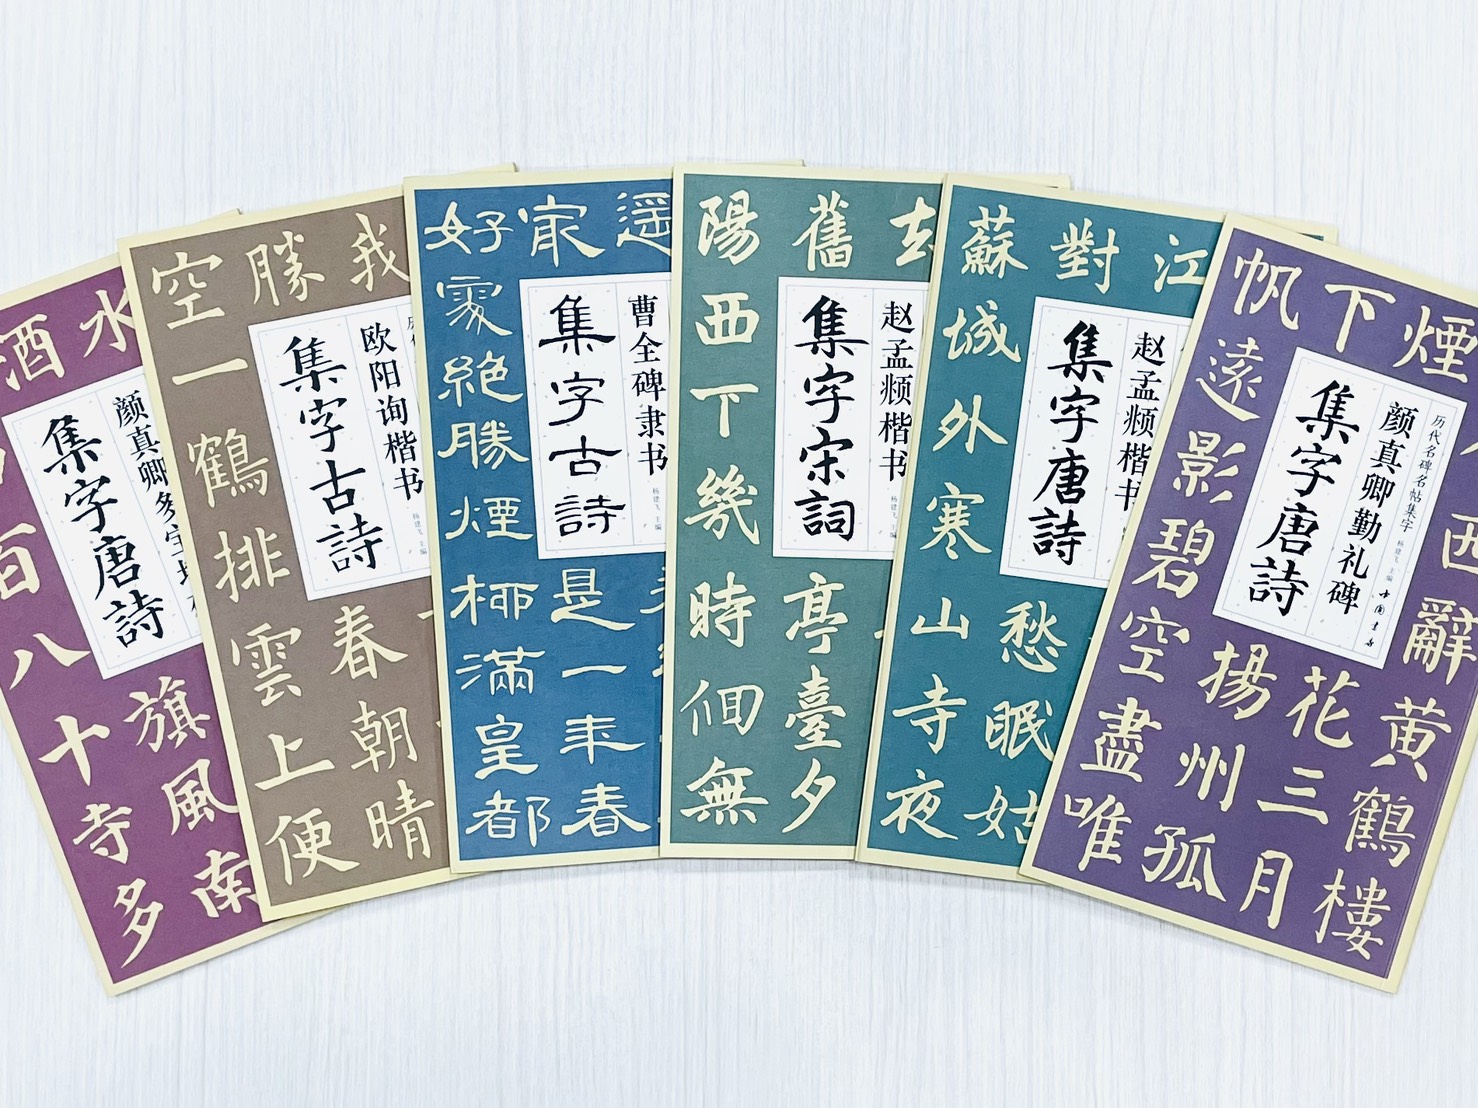 水
旗風南
酒
百八十寺多
颜真卿多宝塔
集字唐詩
我
勝
春朝晴
空一鶴排雲上便
欧阳询楷书
杨建飞 主编
集字古詩
遥
家
是一年春
好處絕勝煙柳滿皇都
曹全碑隶书
杨建飞 主编
集字古詩
去
舊
亭臺夕
陽西下幾時佪無
赵孟頫楷书
杨建飞 主编
集字宋詞
江
對
愁眠姑
蘇城外寒山寺夜
赵孟頫楷书
集字唐詩
西辭黄鶴樓
煙
花三月
下
揚州孤
帆遠影碧空盡唯
历代名碑名帖集字 杨建飞 主编 中国书店
颜真卿勤礼碑
集字唐詩